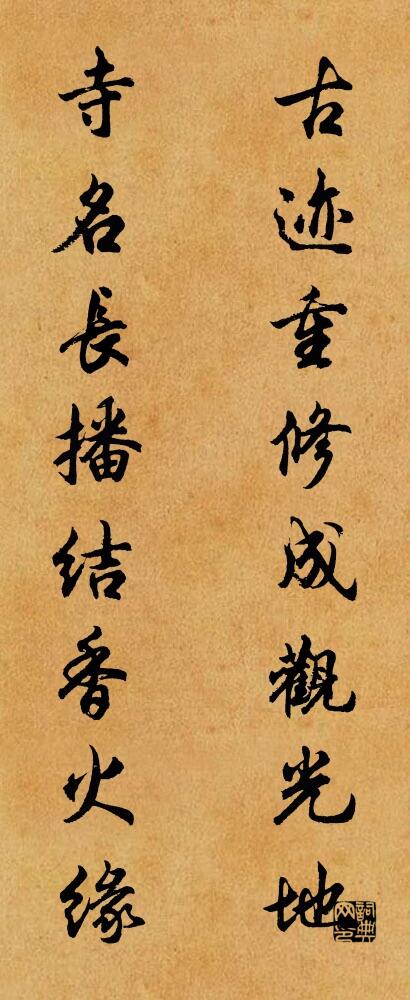 古迹重修成觀光地
寺名長播结香火缘
詞典
网